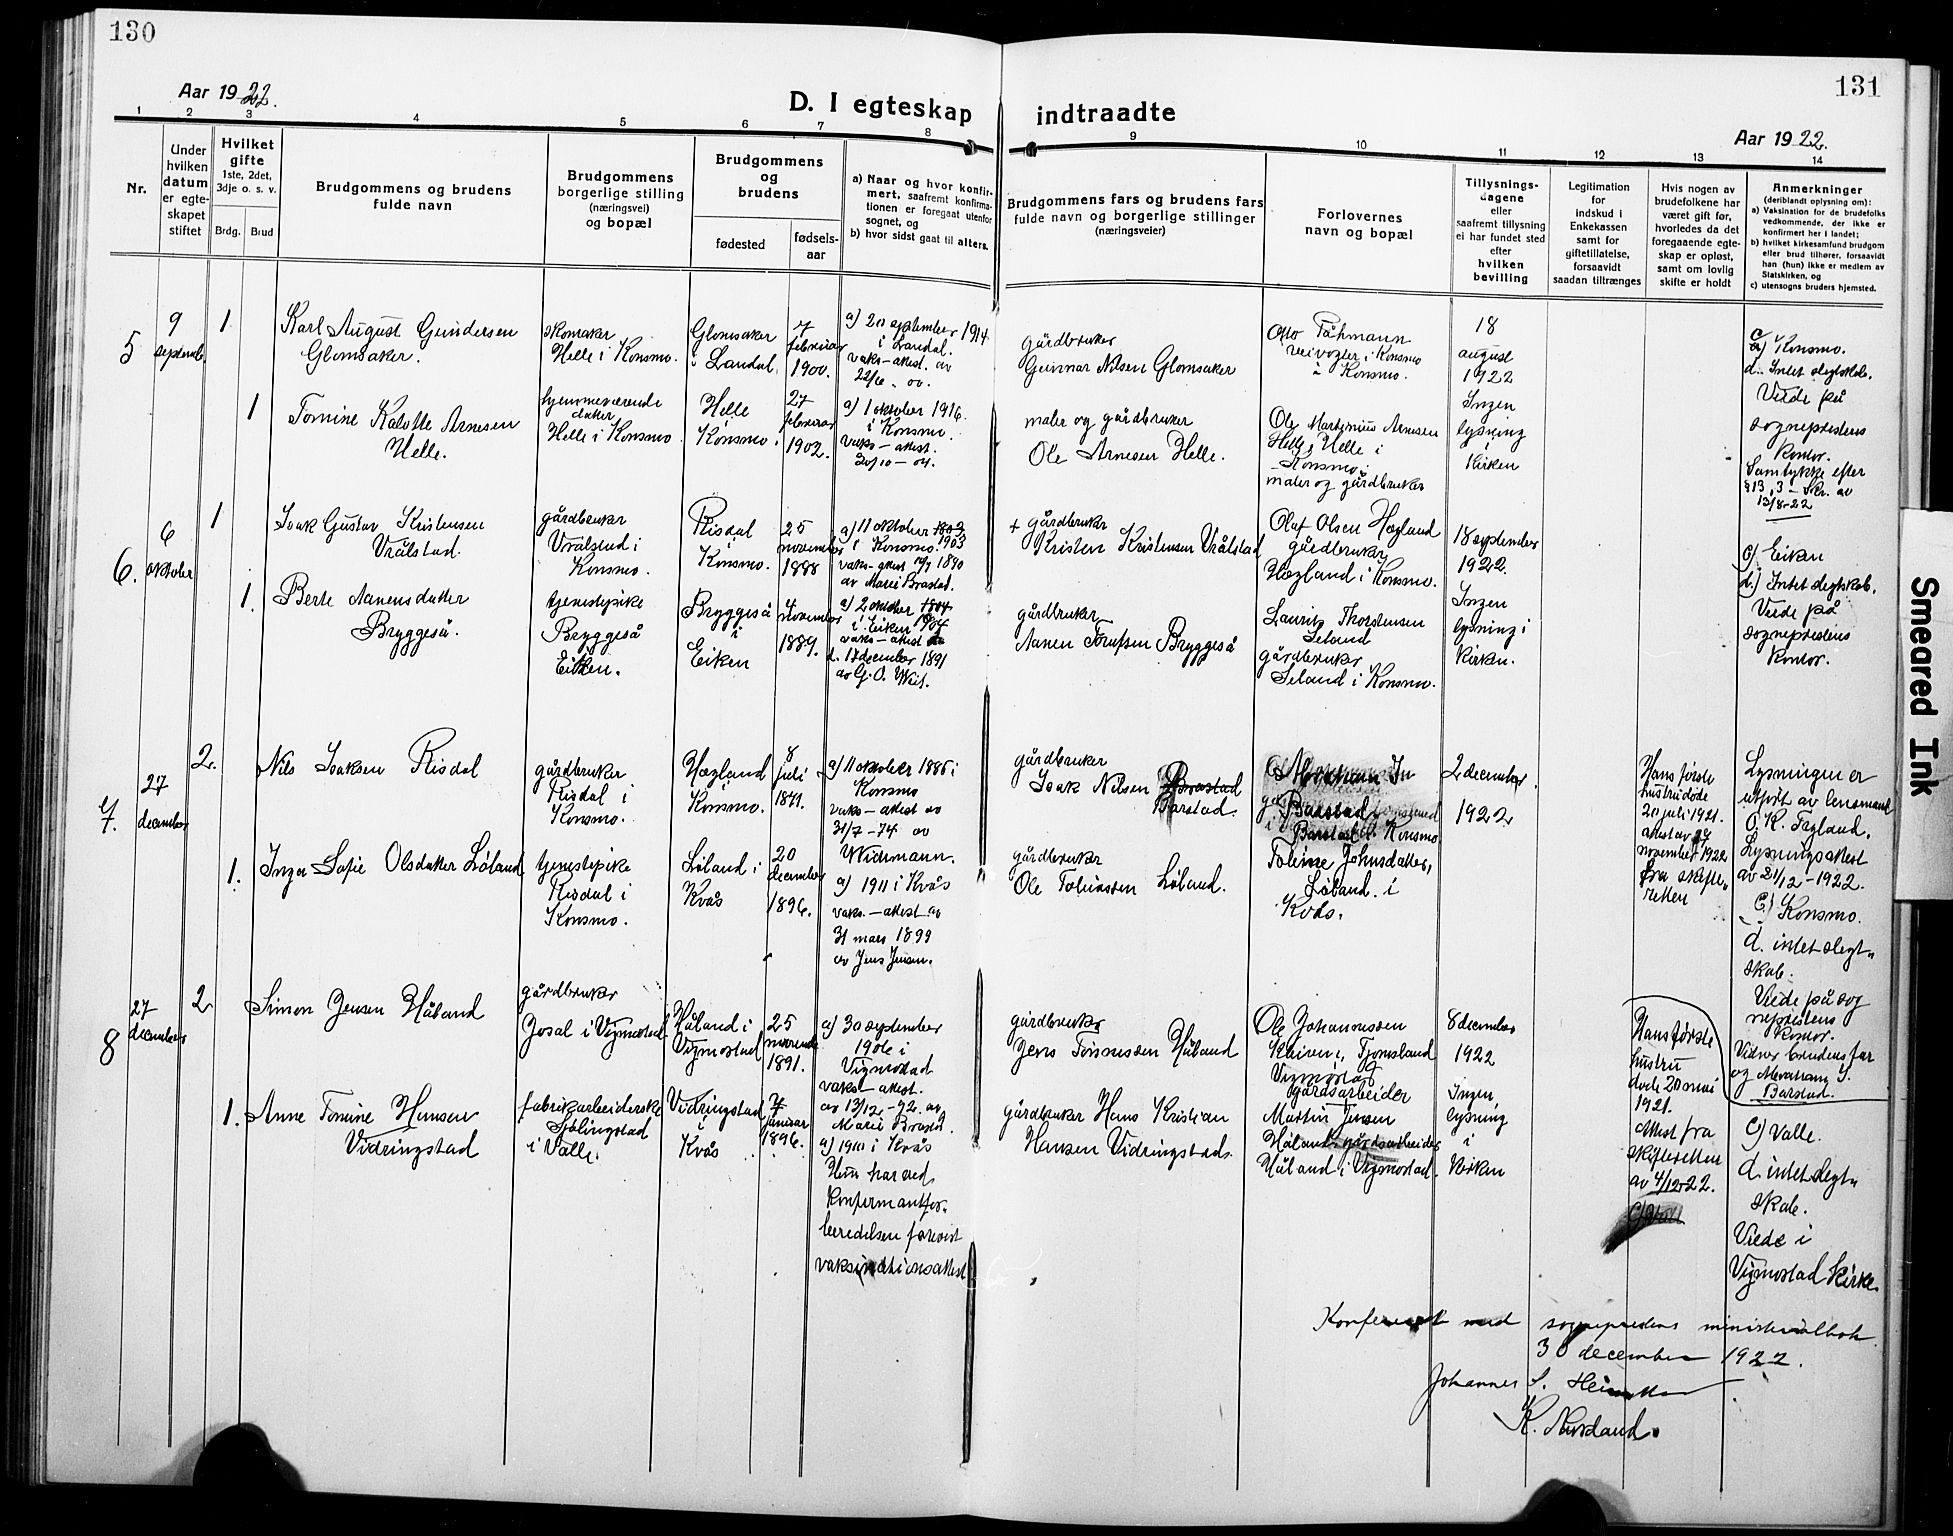 130
131
Aar 1922.
D. I egteskap indtraadte
Aar 1922.
1 2 3 4 5 6 7 8 9 10 11 12 13 14
Nr.
Under
hvilken
datum
er egte-
skapet
stiftet
Hvilket
gifte
1ste, 2det,
3dje o. s. v.
Brdg. Brud
Brudgommens og brudens
fulde navn
Brudgommens
borgerlige stilling
(næringsvei)
og bopæl
Brudgommens
og
brudens
fødested
fødsels-
aar
a) Naar og hvor konfir-
mert, saafremt konfirma-
tionen er foregaat utenfor
sognet, og
b) hvor sidst gaat til alters.
Brudgommens fars og brudens fars
fulde navn og borgerlige stillinger
(næringsveier)
Forlovernes
navn og bopæl
Tillysnings-
dagene
eller
saafremt tillysning
ei har fundet sted
efter
hvilken
bevilling
Legitimation
for
indskud i
Enkekassen
samt for
giftetillatelse,
forsaavidt
saadan tiltrænges
Hvis nogen av
brudefolkene har
været gift før,
hvorledes da det
foregaaende egte-
skap er opløst,
samt om lovlig
skifte er holdt
Anmerkninger
(deriblandt oplysning om):
a) Vaksination for de brudefolks
vedkommende, der ikke er
konfirmert her i landet;
b) hvilket kirkesamfund brudgom
eller brud tilhører, forsaavidt
han (hun) ikke er medlem av
Statskirken, og
c) utensogns bruders hjemsted.
5
9
septemb.
1
Karl August Gundersen
Glomsaker.
skomaker
Helle i Konsmo.
Glomsaker
i Laudal.
7
februar
1900.
a) 20 september 1914
i Laudal.
vaks-attest. av
22/6 - 00.
gårdbruker
Gunnar Nilsen Glomsaker
Otto Påhmann
veivogter i Konsmo
i Konsmo.
18
august
1922
Ingen
lysning
kirken
c) Konsmo.
d. Intet slegtskab.
Viede på
sogneprestens
kontor.
Samtykke efter
§13,3 - skr. av
13/8-22
1
Tomine Kalotte Arnesen
Helle.
hjemmeværende
datter
Helle i Konsmo
Helle
Konsmo.
27
februar
1902.
a) 1 oktober 1916.
i Konsmo.
vaks-attest.
20/10 - 04.
maler og gårdbruker
Ole Arnesen Helle.
Ole Martinius Arnesen
Helle, Helle i
Konsmo.
maler og gårdbruker
6.
6
oktober
1
Isak Gustav Kristensen
Vrålstad.
gårdbruker
Vrålstad i
Konsmo.
Risdal
i
Konsmo.
25
november
1888
a) 11 oktober 1803
i Konsmo. 1903
vaks-attest 1890
av Marie Brastad.
+ gårdbruker
Kristen Kristensen Vrålstad
Olaf Olsen Hægland
gårdbruker
Hægland i Konsmo.
18 september
1922.
Ingen
lysning i
kirken.
c) Eiken
d.) Intet slegtskab.
Viede på
sogneprestens
kontor.
1.
Berte Aanensdatter
Bryggeså.
tjenestepike
Bryggeså
Eiken.
Bryggeså
i
Eiken
4
november
1889.
a) 2 oktober 1804
i Eiken 1904
vaks-attest
d. 17 december 1891
av G. O. Weit.
gårdbruker
Aanen Tomssen Bryggeså
Lauritz Thorstensen
Seland
gårdbruker
Seland i Konsmo.
7.
27
december
2.
Nils Isaksen Risdal
gårdbruker
Risdal i
Konsmo.
Hægland
i
Konsmo.
8
juli
1871.
a) 11 oktober 1885 i
Konsmo
vaks-attest av
31/7-74 av
Widemann.
gårdbruker
Isak Nilsen Brastad
Barstad.
Abraham
Barstad,
i Barstad i Konsmo
2 december
1922
Hans første
hustru døde
20 juli 1921.
attest av 27
november 1922
fra skifte-
retten
Lysningen er
utført av lensmand
O. K. Trygland.
Lysningsattest
av 21/12-1922.
c) Konsmo.
d. intet slegt-
skab.
Viede på sog
neprestens
kontor.
Vidner brudens far
og Abraham I.
Barstad.
1.
Inga Sofie Olsdatter Løland
tjenestepike
Risdal i
Konsmo.
Løland i
Kvås
20
december
1896.
a) 1911 i Kvås
vaks.-attest av
31 mars 1899
av Jens Jensen.
gårdbruker
Ole Tobiassen Løland.
Toline Johnsdatter,
Løland. i
Kvås.
8
27
december
2
Simon Jensen Håland
gårdbruker
Josal i Vigmostad
Håland i
Vigmostad
25
november
1891.
a) 30 september
1906 i
Vigmostad
vaks-attest.
av 13/12-92. av
Marie Brastad.
gårdbruker
Jens Tønnessen Håland
Ole Johannessen
Kleiven, Tjomsland
Vigmostad
gårdsarbeider
8 december
1922
Ingen
lysning
i
kirken
Hans første
hustru
døde 20 mai
1921.
attest fra
skifteretten
av 4/12-22.
c) Valle.
d. intet slegt-
skab.
Viede i
Vigmostad Kirke.
1.
Anne Tomine Hansen
Vidringstad
fabrikarbeiderske
i Valle.
Vidringstad
i
Kvås
7
januar
1896.
a) 1911 i Kvås
Hun har ved
konfirmantfor-
beredelsen forevist
vaksinationsattest
gårdbruker Hans Kristian
Hansen Vidringstad.
Martin Jensen
Håland, gårdsarbeider
Håland i Vigmostad.
Konferert med sogneprestens ministerialbok
30 december 1922.
Johannes S.
K. Aursland.
Smeared Ink